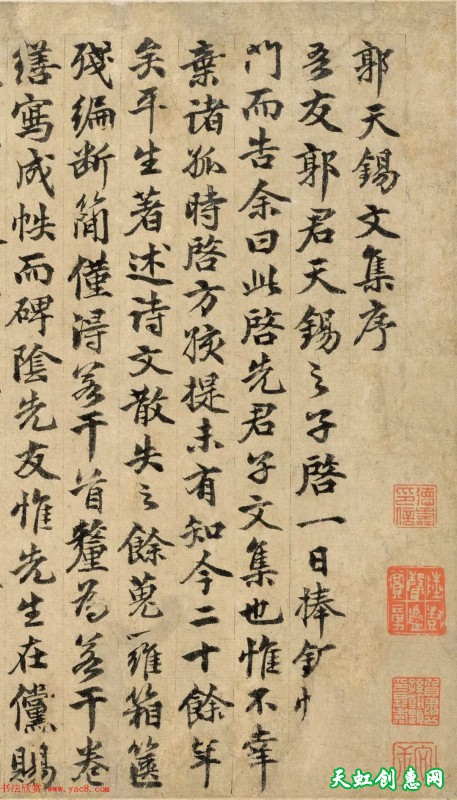 郭天錫文集序
吾友郭君天錫之子啓一日捧
門而告余曰此啓先君子文集也惟不幸
棄諸孤時啓方孩提未有知今二十餘年
矣平生著述诗文散失之餘蒐羅箱篋
殘編断簡僅得若干首釐為若干卷
繕寫成帙而碑陰先友惟先生在儻賜
陸樹聲鑑賞章
书法欣赏 www.yac8.com
天虹创意网